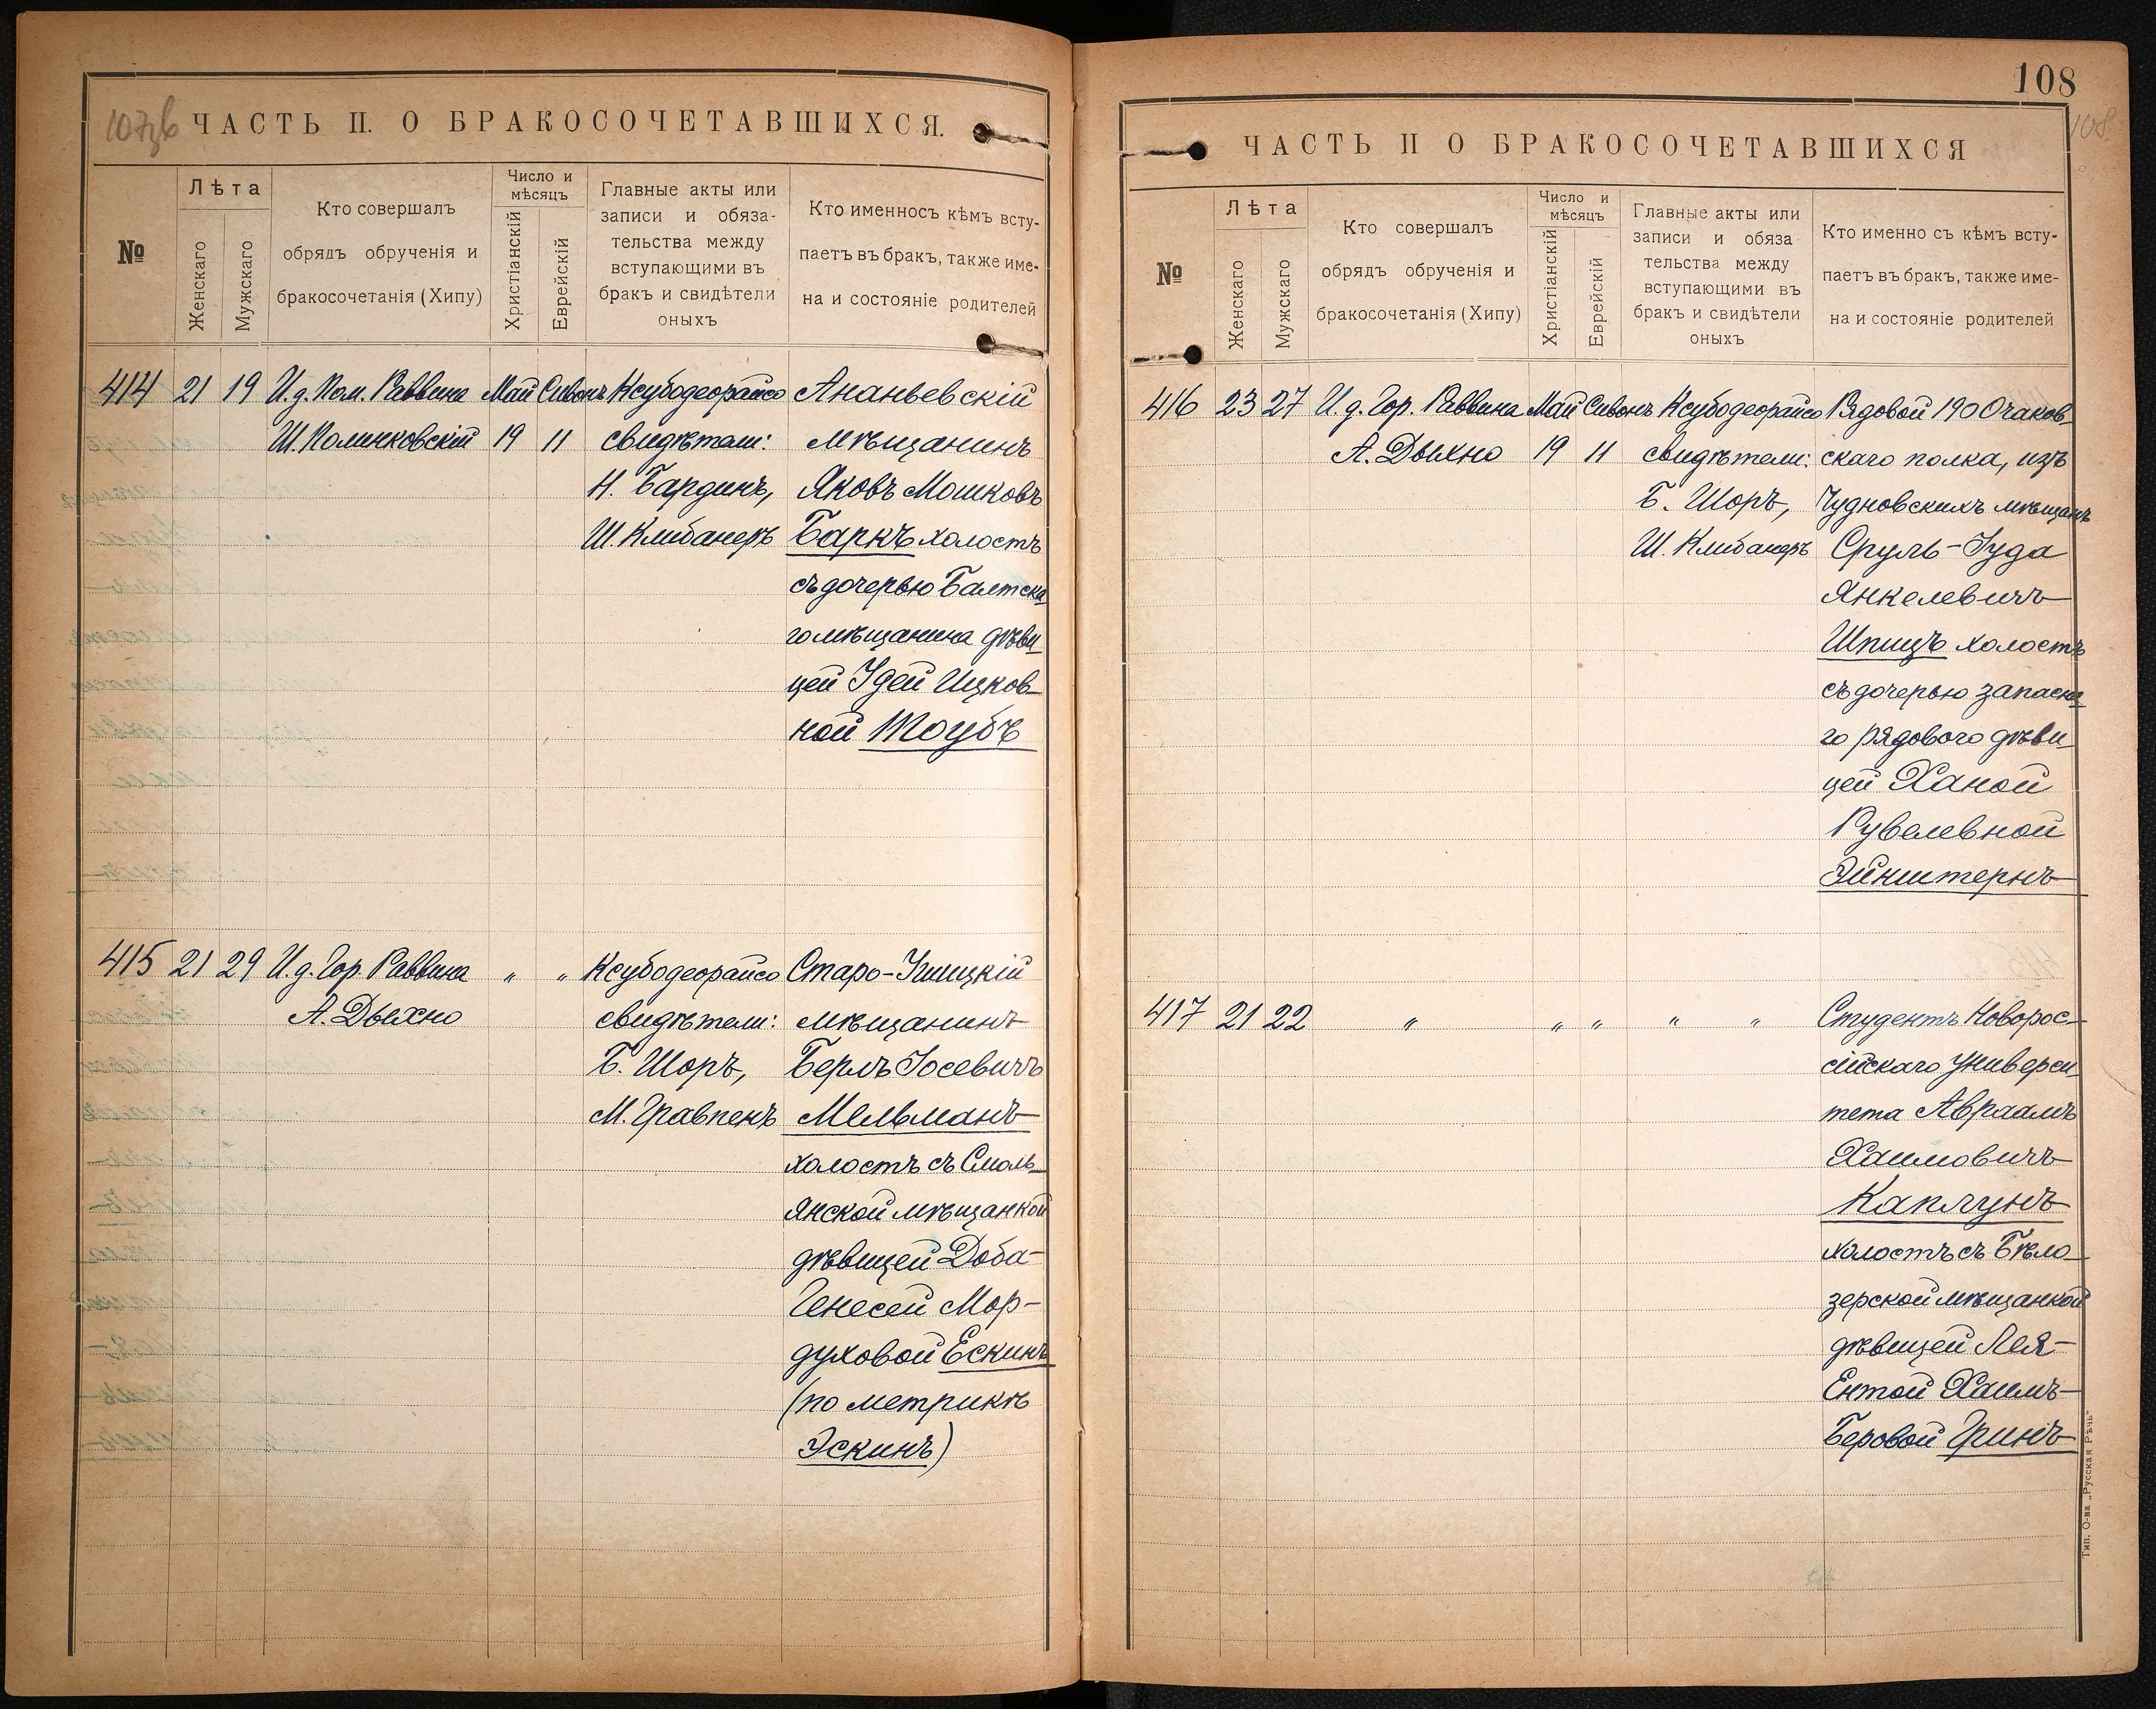 107об
ЧАСТЬ II. О БРАКОСОЧЕТАВШИХСЯ.
№
Лѣта
Женскаго
Мужскаго
Кто совершалъ
обрядъ обрученія и
бракосочетанія (Хипу)
Число и
мѣсяцъ
Христіанскій
Еврейскій
Главные акты или
записи и обяза-
тельства между
вступающими въ
бракъ и свидѣтели
оныхъ
Кто именносъ кѣмъ всту-
паетъ въ бракъ, также име-
на и состояніе родителей
414 21 19 И.д. Пом. Раввина Май Сивонъ Ксубодеорайсо Ананьевскій
Ш. Полинковскій 19 11 свидѣтели: мѣщанинъ
Н. Бардинъ, Яковъ Мошковъ
Ш. Клибанеръ Баркъ холостъ
съ дочерью Балтска
го мѣщанина дѣви
цей Идей Ицков-
ной Тоубъ
415 21 29 И.д. Гор. Раввина " " Ксубодеорайсо Старо-Ушицкій
А. Дыхно свидѣтели: мѣщанинъ
Б. Шоръ, Берлъ Іосевичъ
М. Гравпенъ Мельманъ
холостъ съ Смоль-
янской мѣщанкой
дѣвицей Доба-
Генесей Мор-
духовой Ескинъ
(по метрикѣ
Эскинъ)
108
108
ЧАСТЬ II О БРАКОСОЧЕТАВШИХСЯ
№
Лѣта
Женскаго
Мужскаго
Кто совершалъ
обрядъ обрученія и
бракосочетанія (Хипу)
Число и
мѣсяцъ
Христіанскій
Еврейскій
Главные акты или
записи и обяза
тельства между
вступающими въ
бракъ и свидѣтели
оныхъ
Кто именно съ кѣмъ всту-
паетъ въ бракъ, также име-
на и состояніе родителей
416 23 27 И.д. Гор. Раввина Май Сивонъ Ксубодеорайсо Рядовой 190 Очаков-
А. Дыхно 19 11 свидѣтели: скаго полка, изъ
Б. Шоръ, Чудновскихъ мѣщанъ
Ш. Клибанеръ Сруль-Іуда
Янкелевичъ
Шпицъ холостъ
съ дочерью запасна
го рядового дѣви
цей Ханой
Рувелевной
Эйнштернъ
417 21 22 " " " " " Студентъ Новорос-
сійскаго Универси-
тета Авраамъ
Хаимовичъ
Каплунъ
холостъ съ Бѣло-
зерской мѣщанкой
дѣвицей Лея-
Ентой Хаимъ-
Беровой Гринъ
Тип. О-ва „Русская Рѣчь"